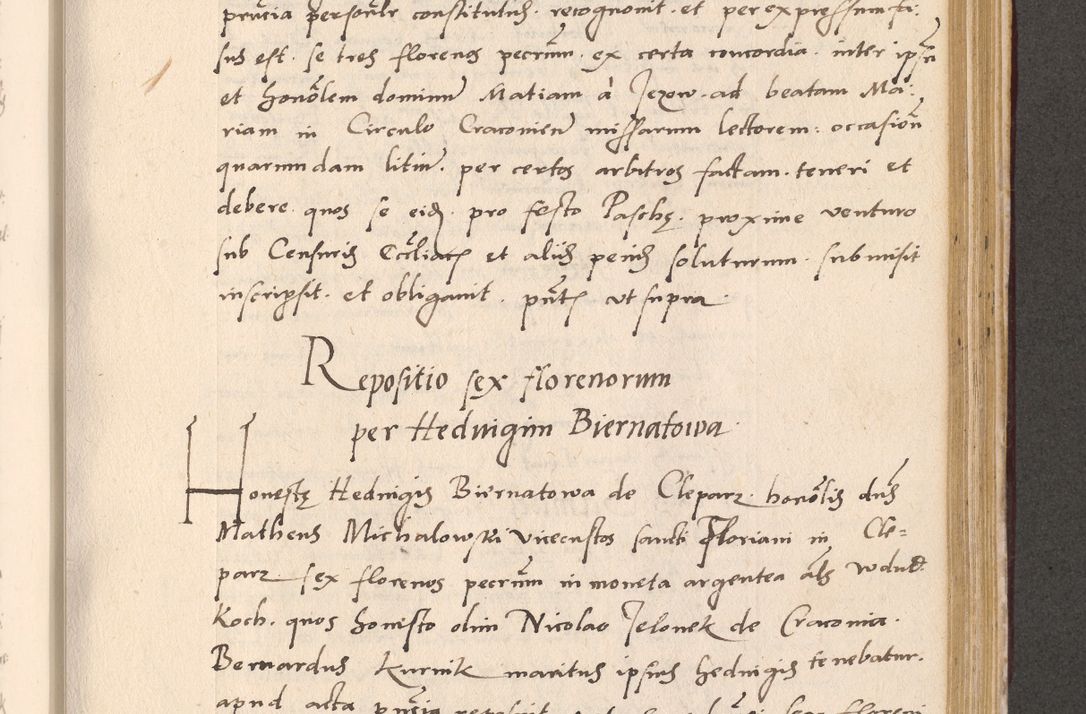 prñcia personałr constitutus. recognovit. et per expressum fi:
sus est. se tres florenos pecrum. ex certa concordia. inter ipsũ
et honõlem dominum Matiam à Jexow. ad beatam Ma:
riam in Circulo Cracoviens missarum lectorem. occasioñ
quarumdam litium. per certos arbitros factam. teneri et
debere. quos se eidem. pro festo Paschę. proxime venturo
sub Censuris Eccliaces et aliis penis soluturum. submisit
inscripsit. et obligavit. pñtes ut supra.
Repositio sex florenorum
per Hedvigim Biernatowa.
Honestę Hedvigis Biernatowa de Clepar. honõlis dns
Matheus Michalowski vicecustos sancti Floriani in Cle=
par sex florenos pecrum in moneta argentea als wdud
Koch. quos honesto olim Nicolao Jelonek de Cracovia.
Bernardus Kurnik maritus ipsius hedvigis tenebatur.
apud acta pñcia